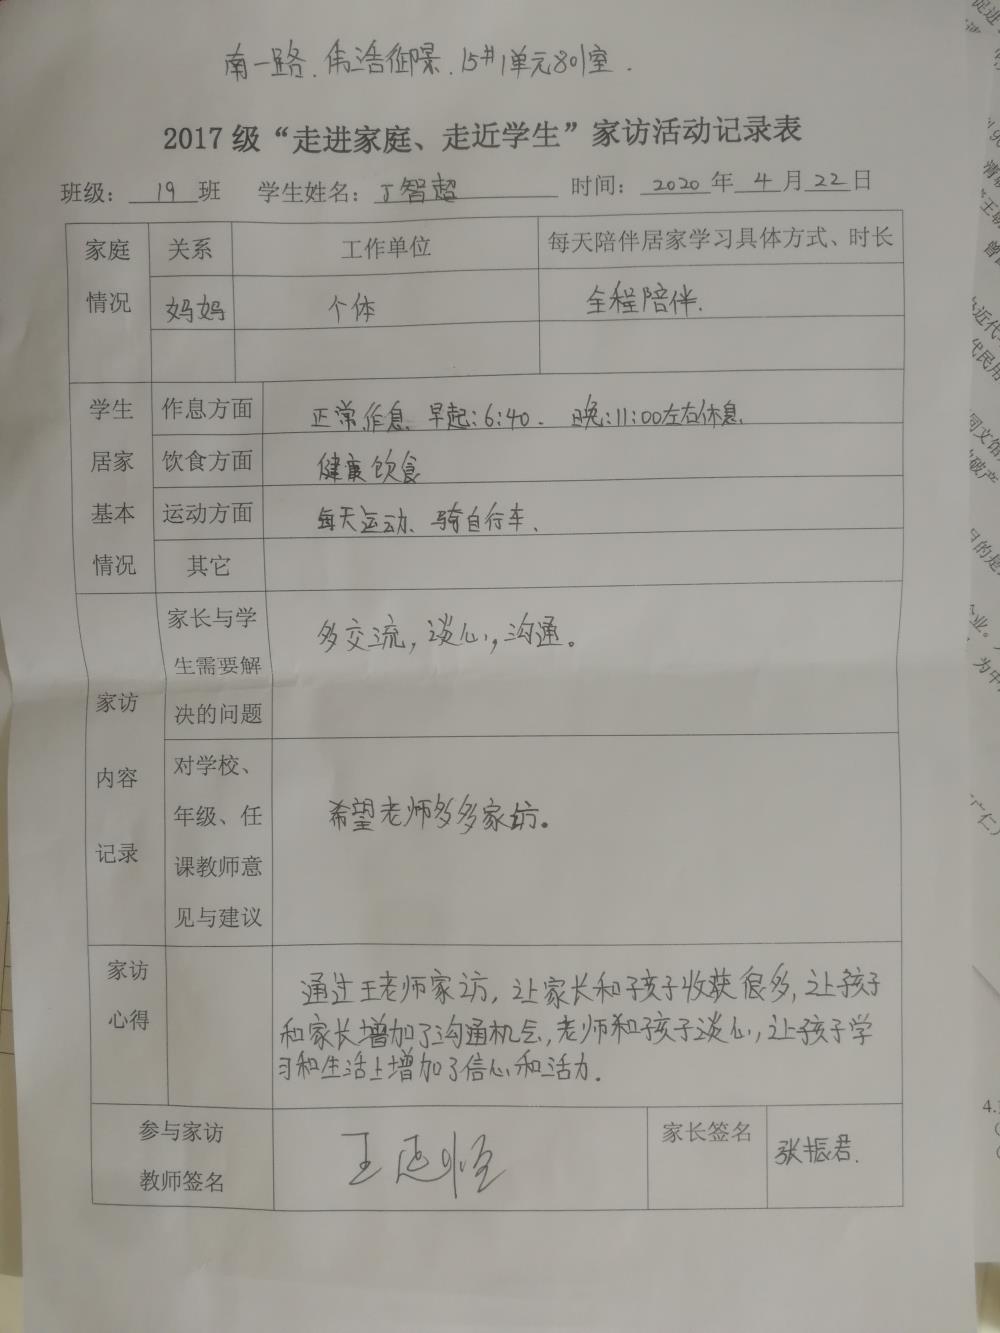 南一路.伟浩御景.15#1单元801室.
2017级“走进家庭、走近学生”家访活动记录表
班级：19班 学生姓名：丁智超 时间：2020年4月22日
家庭情况 关系 工作单位 每天陪伴居家学习具体方式、时长
妈妈 个体 全程陪伴.
学生居家基本情况 作息方面 正常作息.早起:6:40. 晚:11:00左右休息.
饮食方面 健康饮食
运动方面 每天运动、骑自行车、
其它
家访内容记录 家长与学生需要解决的问题 多交流,谈心,沟通。
对学校、年级、任课教师意见与建议 希望老师多多家访。
家访心得 通过王老师家访,让家长和孩子收获很多,让孩子
和家长增加了沟通机会,老师和孩子谈心,让孩子学
习和生活上增加了信心和活力.
参与家访教师签名 王 家长签名 张振君.